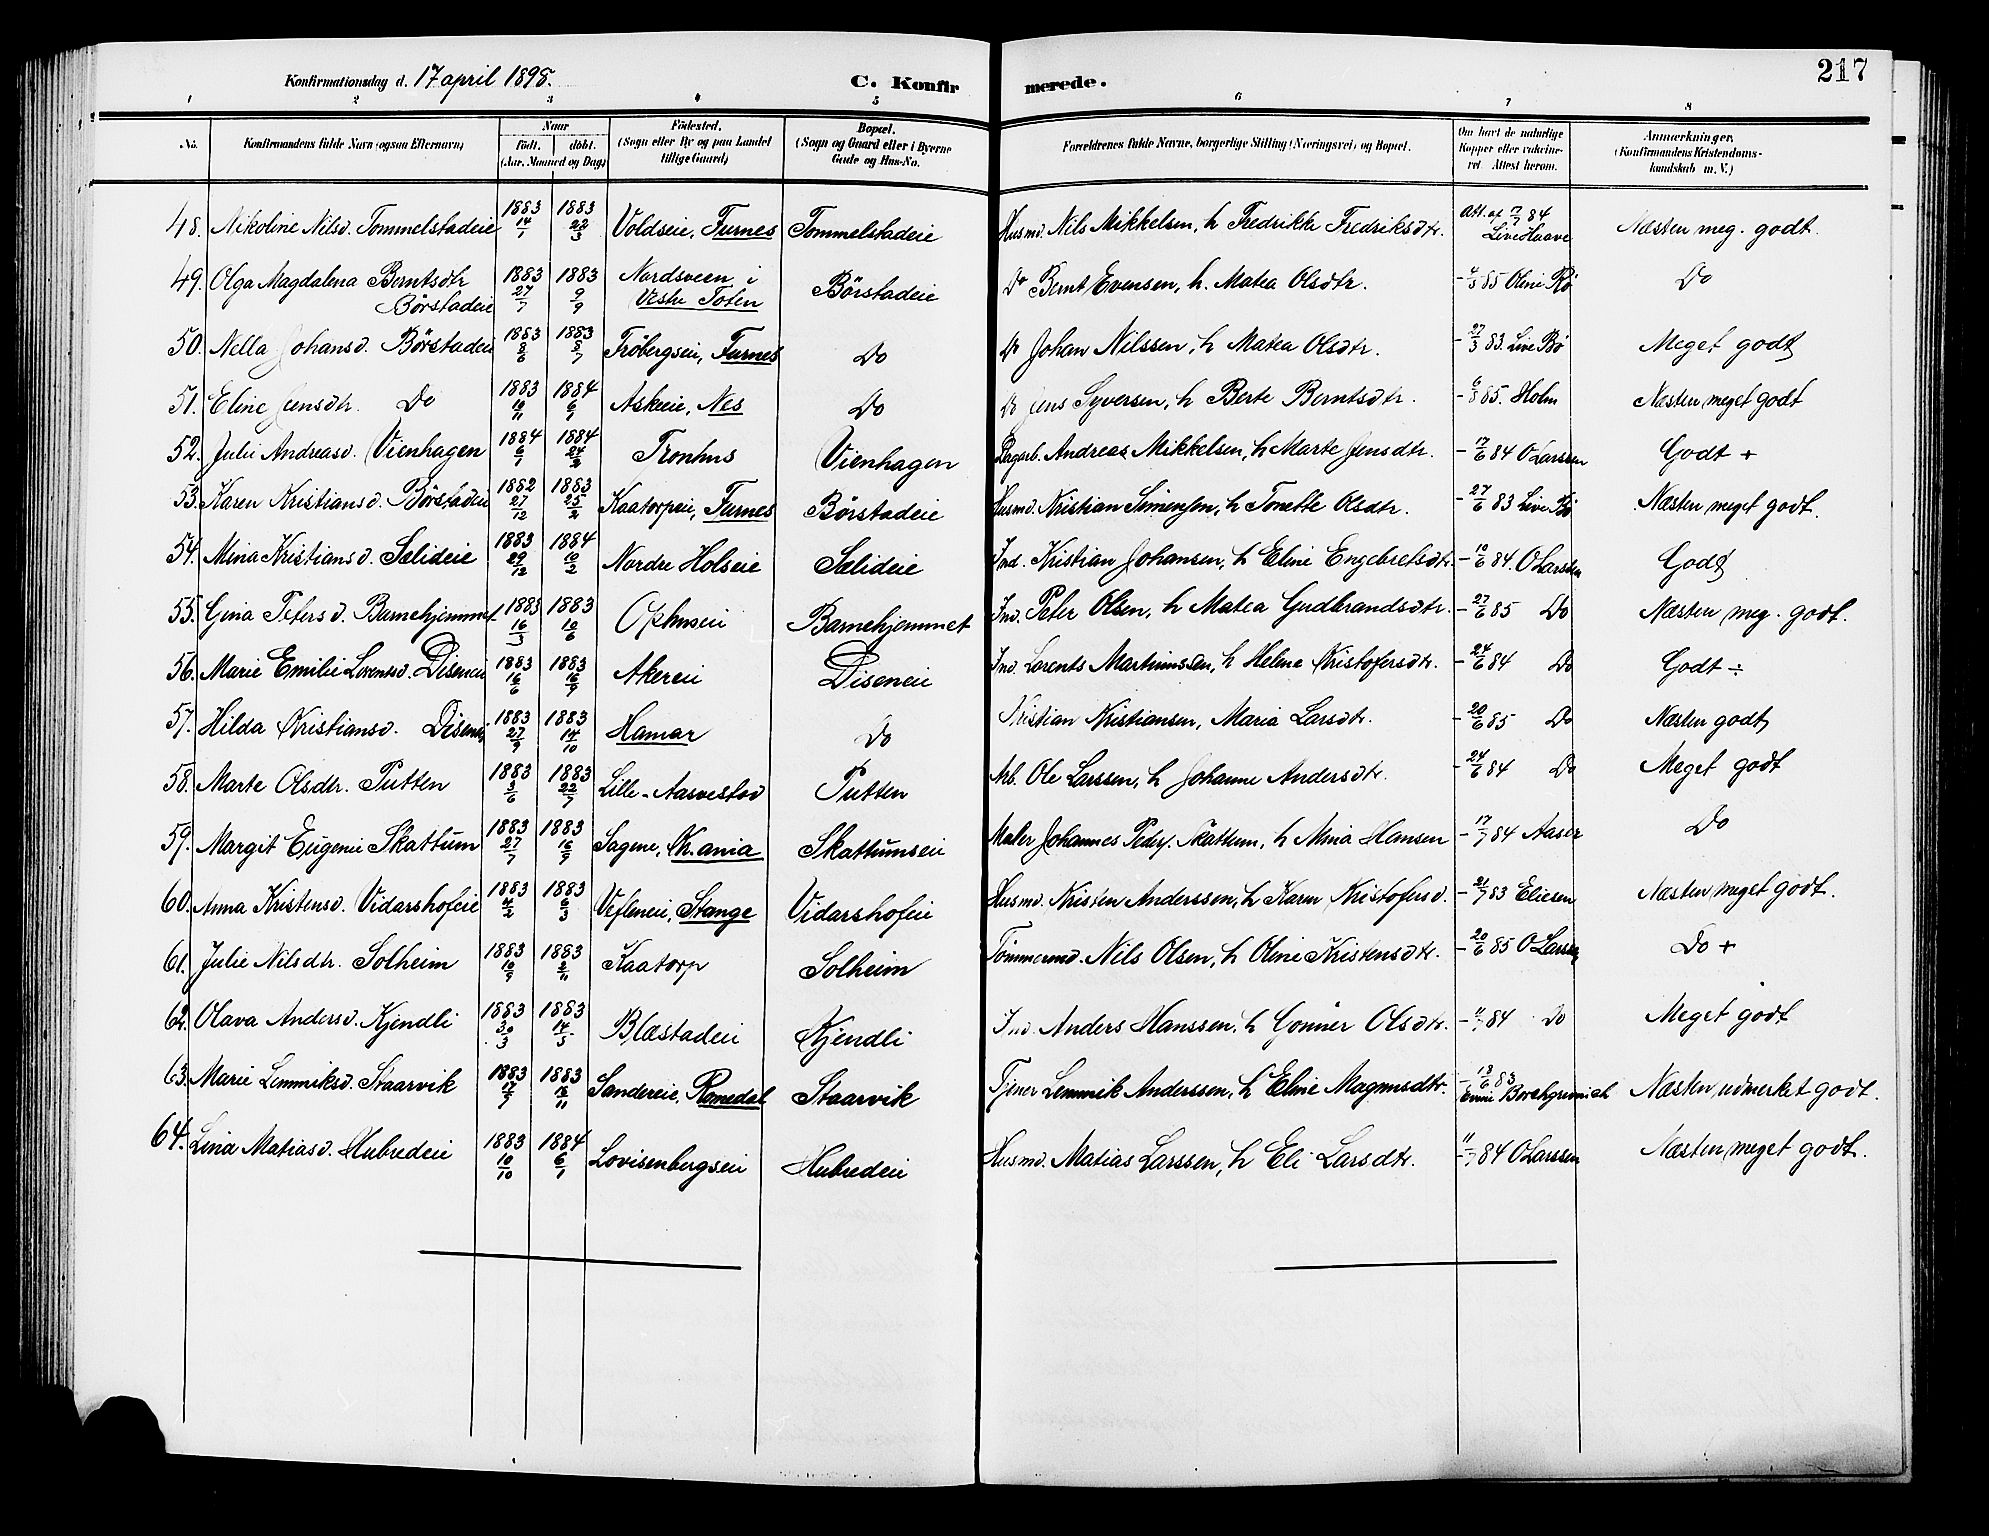 217
Konfirmationsdag d. 17 april 1898. C. Konfirmerede.
1 2 3 4 5 6 7 8
No. Konfirmandens fulde Navn (ogsaa Efternavn) Naar født. døbt. (Aar, Maaned og Dag) Fødested. (Sogn eller By og paa Landet tillige Gaard) Bopæl. (Sogn og Gaard eller i Byerne Gade og Hus-No. Forældrenes fulde Navne, borgerlige Stilling (Næringsvei) og Bopæl. Om havt de naturlige Kopper eller vakcineret Attest herom. Anmærkninger, (Konfirmandens Kristendomskundskab m. V.)
48. Nikoline Nilsd. Tommelstadeie 1883 14/1 1883 22/3 Voldseie, Furnes Tommelstadeie Husmd. Nils Mikkelsen, h Fredrikke Fredriksdtr. Att. af 17/7 84 Live Haave Næsten meg. godt.
49. Olga Magdalena Berntsdtr Børstadeie 1883 27/7 1883 9/9 Nordsveen i Vestre Toten Børstadeie Do Bernt Evensen, h. Matea Olsdtr. - 4/5 85 Oline Rø Do
50. Nella Johansd. Børstadeie 1883 8/6 1883 8/7 Frøbergseie, Furnes Do Do Johan Nilssen, h Matea Olsdtr. - 27/3 83. Live Bø Meget godt
51. Eline Jensdtr. Do 1883 10/11 1884 6/1 Askeie, Nes Do Do Jens Syversen, h Berte Berntsdtr. - 6/8 85. Holm Næsten meget godt
52. Julie Andreasd. Vienhagen 1884 6/1 1884 24/2 Tronhus Vienhagen Bergarb. Andreas Mikkelsen, h Marte Jensdtr. - 17/6 84 O Larssen Godt +
53. Karen Kristiansd. Børstadeie 1882 27/12 1883 25/2 Kaatorpeie, Furnes Børstadeie Husmd. Kristian Simensen, h Tonette Olsdtr. - 27/6 83 Live Bø Næsten meget godt.
54. Mina Kristiansd. Sælideie 1883 29/12 1884 10/2 Nordre Holseie Sælideie Ind. Kristian Johansen, h Eline Engebretsdtr. - 10/6 84. O Larssen Godt
55. Gina Petersd. Barnehjemmet 1883 16/3 1883 10/6 Ophuseie Barnehjemmet Ind. Peter Olsen, h Matea Gudbrandsdtr. - 27/6 85 Do Næsten meg. godt.
56. Marie Emilie Lorentsd. Diseneie 1883 16/6 1883 16/9 Akereie Diseneie Ind. Lorents Martinussen, h Helene Kristofersdtr. - 24/6 84 Do Godt ÷
57. Hilda Kristiansd. Disenei 1883 27/9 1883 14/10 Hamar Do Kristian Kristiansen, Maria Larsdtr. - 20/6 85 Do Næsten godt
58. Marte Olsdtr. Putten 1883 3/6 1883 22/7 Lille-Aarvestad Putten Arb. Ole Larssen, h Johanne Andersdtr. - 24/6 84 Do Meget godt
59. Margit Eugenie Skattum 1883 27/7 1883 16/9 Sagene, Kr.ania Skattumseie Maler Johannes Peders. Skattum, h Mina Hansen - 17/7 84 Aaser Do
60. Anna Kristensd. Vidarshofeie 1883 4/2 1883 6/3 Vefleneie, Stange Vidarshofeie Husmd. Kristen Anderssen, h Karen Kristofersd. - 21/7 83 Eliesen Næsten meget godt.
61. Julie Nilsdtr. Solheim 1883 10/9 1883 2/11 Kaatorp Solheim Tømmermd. Nils Olsen, h Oline Kristensdtr. - 20/6 85 O Larssen Do +
62. Olava Andersd. Kjendli 1883 30/3 1883 14/5 Blæstadeie Kjendli Ind. Anders Hanssen, h Gønner Olsdtr. - 11/7 84 Do Meget godt
63. Marie Lemmiksd. Staarvik 1883 17/9 1883 18/11 Sandereie, Romedal Staarvik Tjener Lemmik Anderssen, h Eline Magnusdtr. - 18/6 83 Enine Borchgrevinck Næsten udmerket godt.
64. Lina Matiasd. Hubredeie 1883 10/10 1884 6/1 Lovisenbergseie Hubredeie Husmd. Matias Larssen, h Eli Larsdtr. - 11/7 84 O Larssen Næsten meget godt.